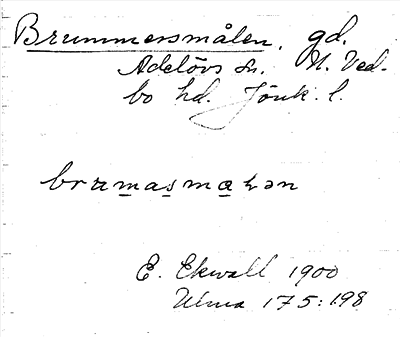 Brummersmålen, gd.
Adelövs sn. N. Ved-
bo hd. Jönk. l.
E. Ekwall 1900
Ulma 175:198